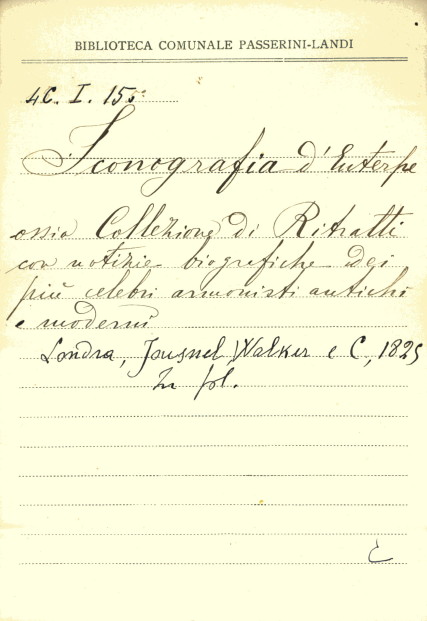 BIBLIOTECA COMUNALE PASSERINI-LANDI
4C. I. 15
Iconografia d'Euterpe
ossia Collezione di Ritratti
con notizie biografiche dei
più celebri armonisti antichi
e moderni
Londra, Walker e C, 1825
In fol.